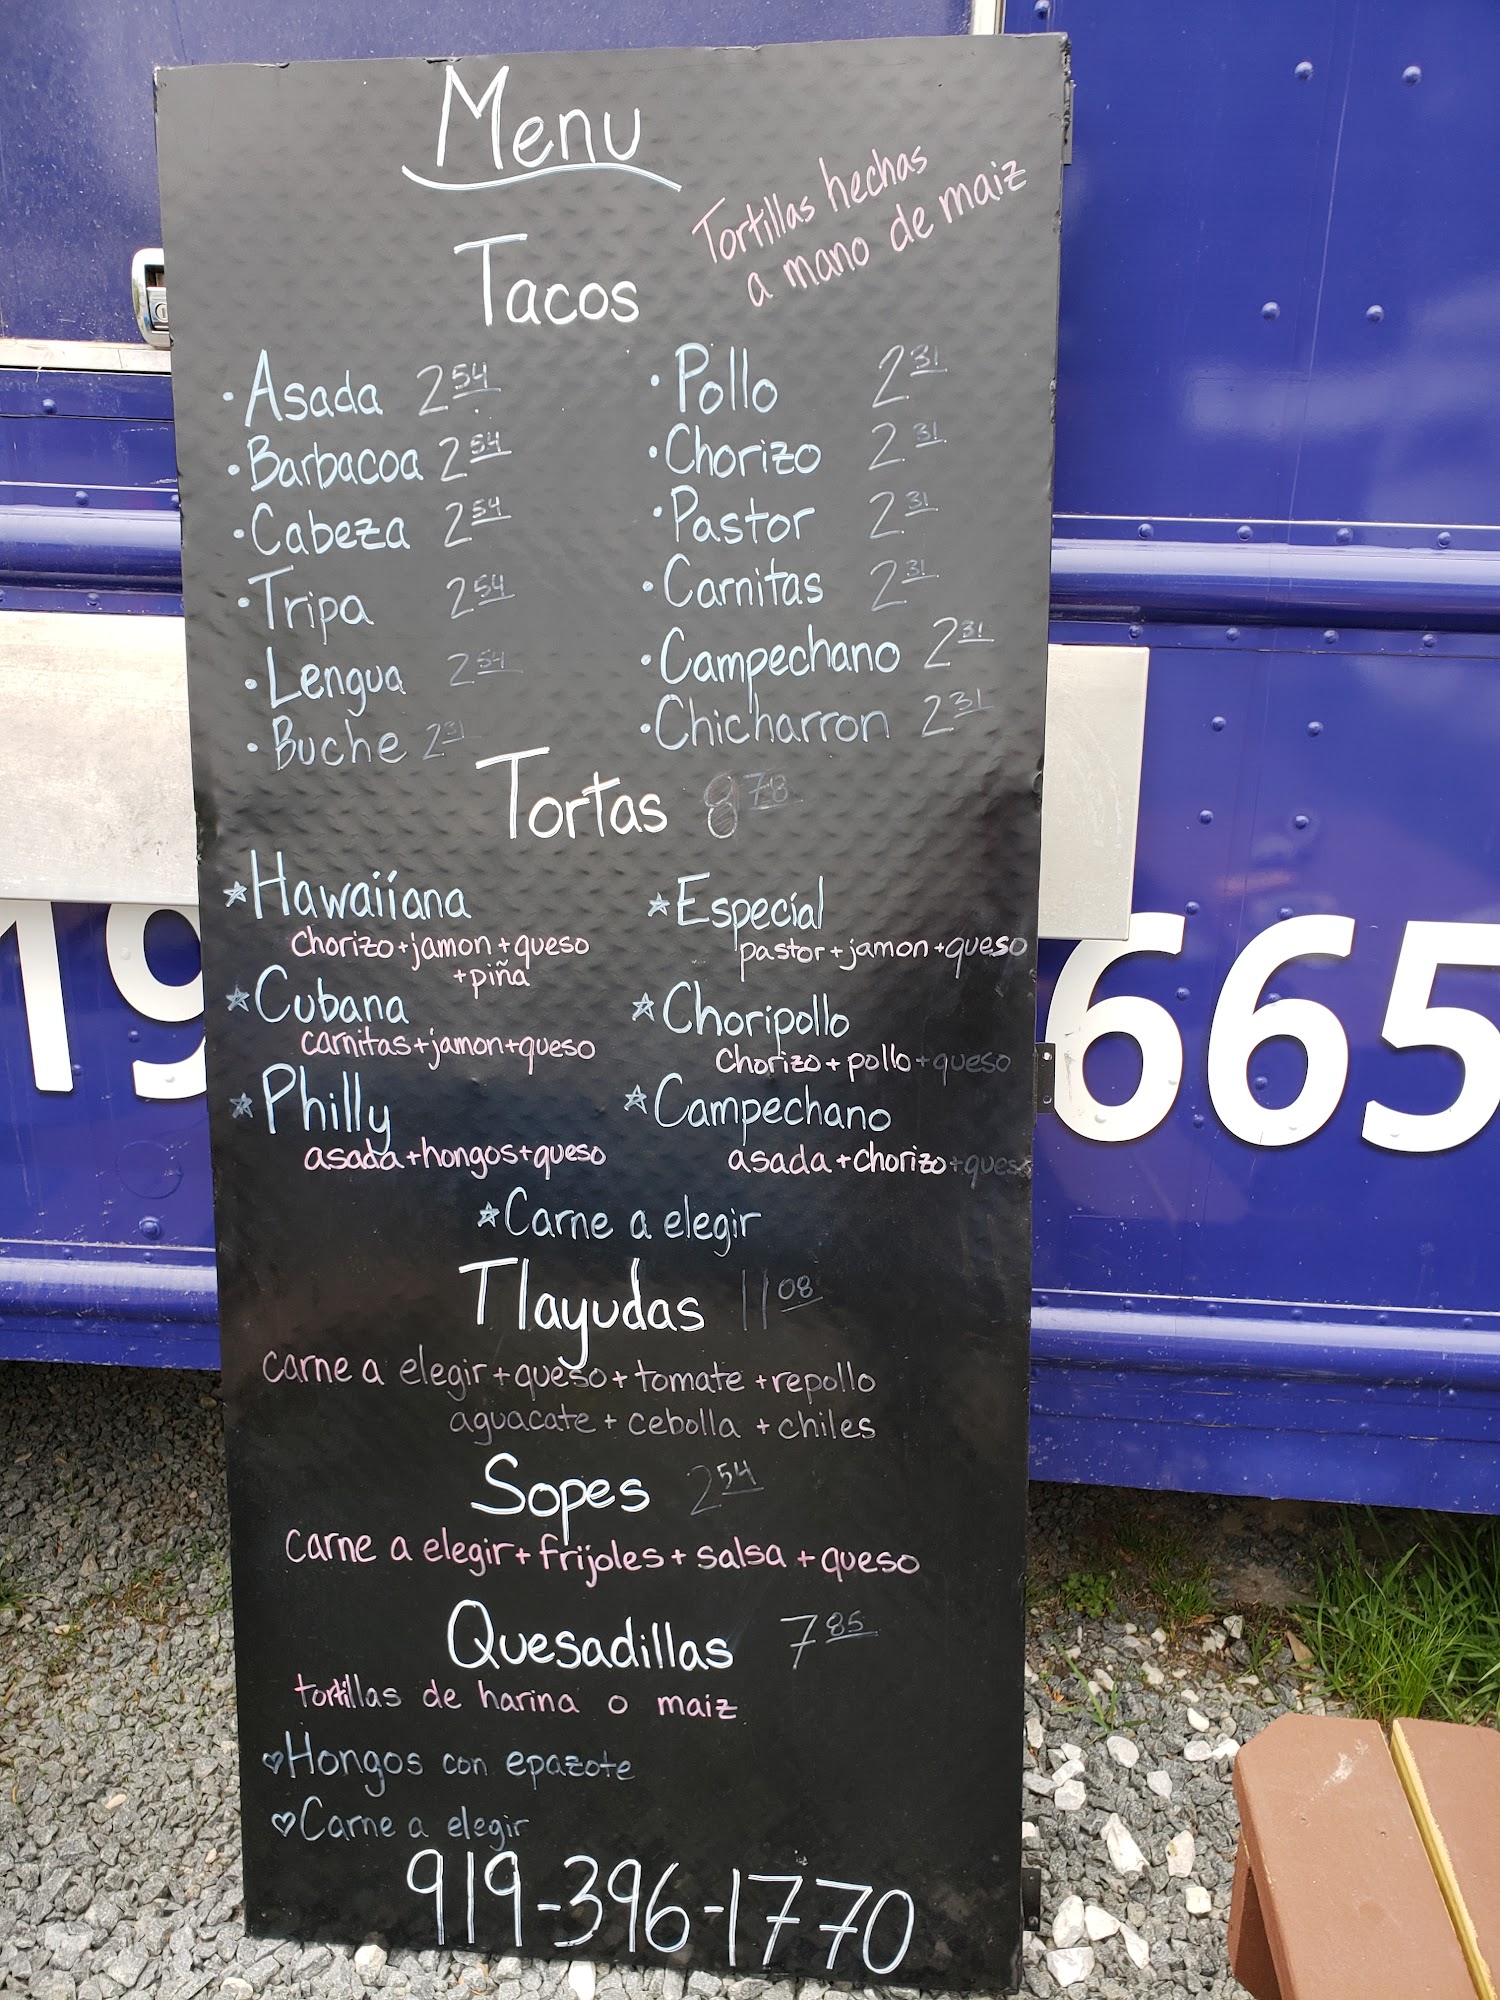 Menu
Tortillas hechas
a mano de maiz
Tacos
· Asada 2 54
· Pollo 2 31
· Barbacoa 2 54
· Chorizo 2 31
· Cabeza 2 54
· Pastor 2 31
· Tripa 2 54
· Carnitas 2 31
· Lengua 2 54
· Campechano 2 31
· Buche 2 31
· Chicharron 2 31
Tortas 8 78
☆ Hawaiiana
chorizo + jamon + queso
+ piña
☆ Especial
pastor + jamon + queso
☆ Cubana
carnitas + jamon + queso
☆ Choripollo
chorizo + pollo + queso
☆ Philly
asada + hongos + queso
☆ Campechano
asada + chorizo + queso
☆ Carne a elegir
Tlayudas 11 08
carne a elegir + queso + tomate + repollo
aguacate + cebolla + chiles
Sopes 2 54
carne a elegir + frijoles + salsa + queso
Quesadillas 7 85
tortillas de harina o maiz
♡ Hongos con epazote
♡ Carne a elegir
919-396-1770
19
665